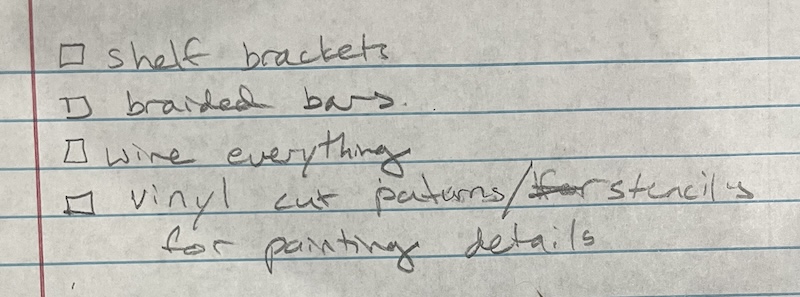 ☐ shelf brackets
☐ braided bars.
☐ wire everything
☐ vinyl cut paturns/~~for~~ stencils
for painting details